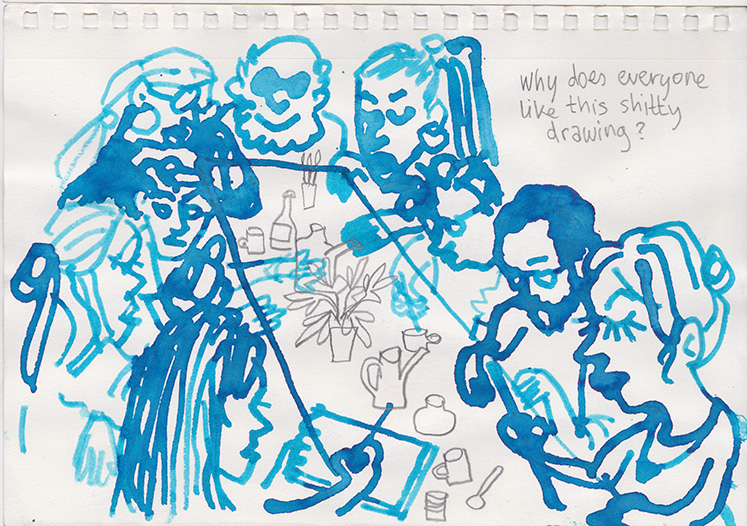 why does everyone
like this shitty
drawing?